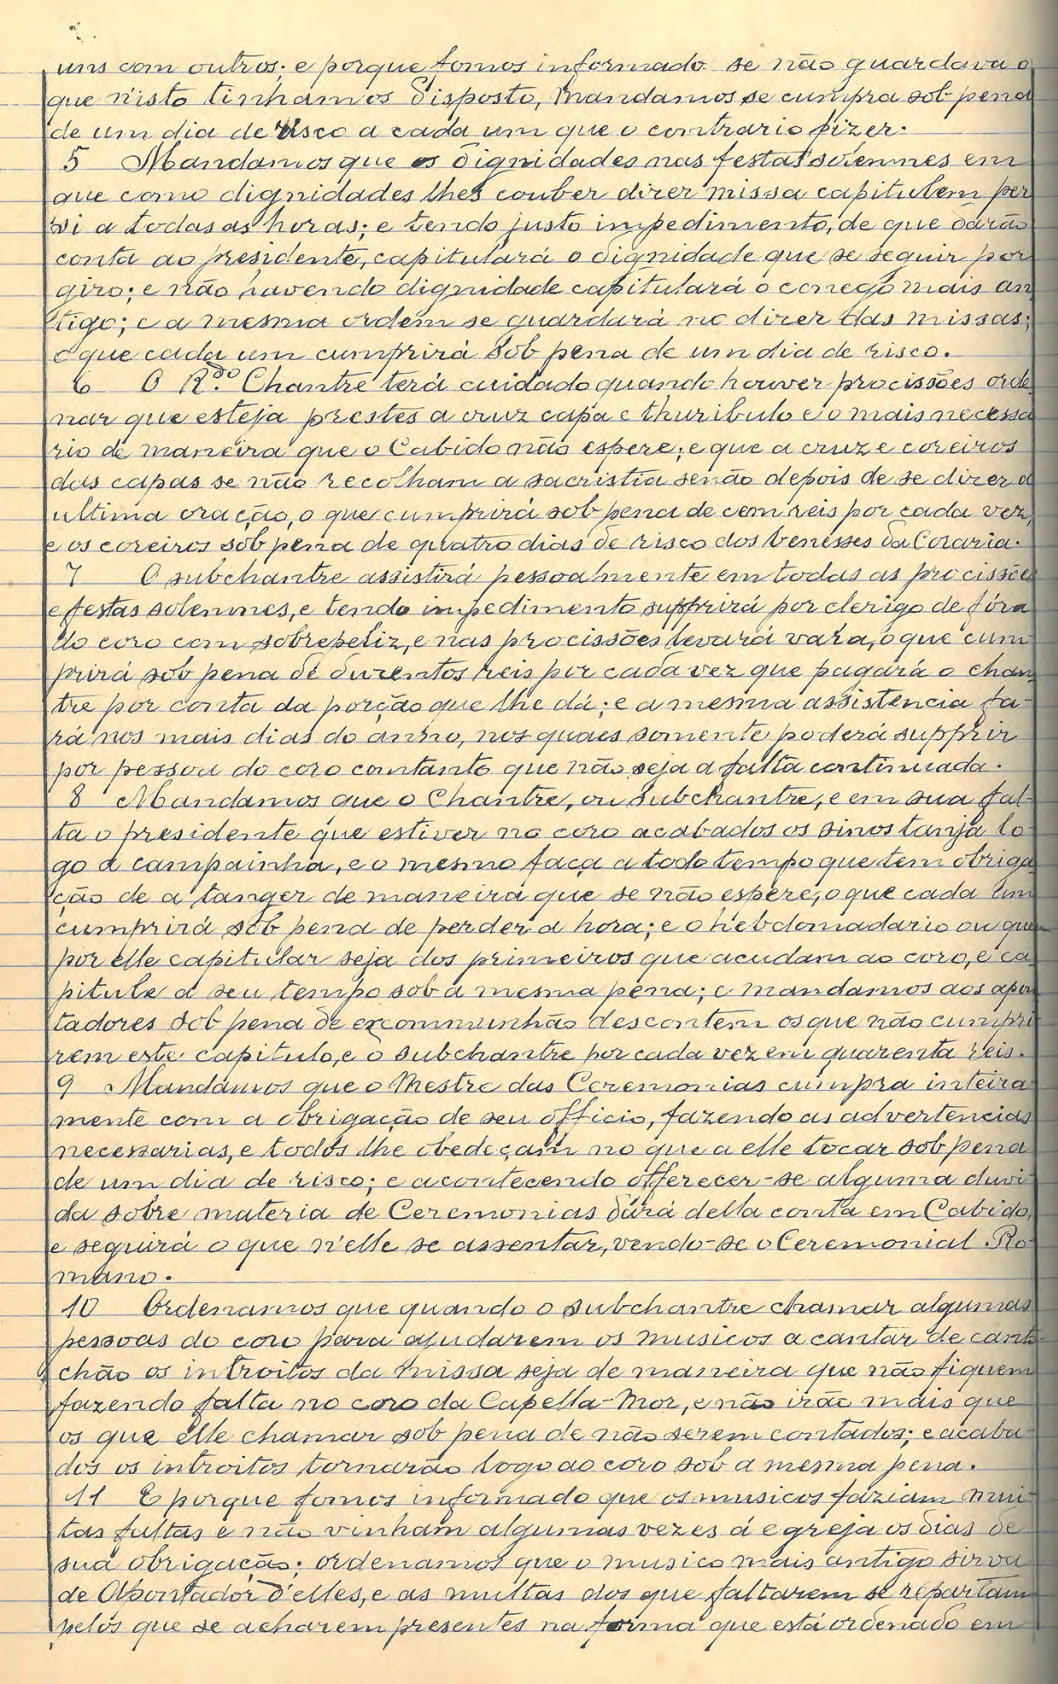 2.
uns com outros; e porque fomos informado se não guardava o
que n'isto tinhamos disposto, Mandamos se cumpra sob pena
de um dia de risco a cada um que o contrario fizer.
5 Mandamos que os dignidades nas festas solemnes em
que como dignidades lhes couber dizer missa capitulem per
si a todas as horas; e tendo justo impedimento, de que darão
conta ao presidente, capitulará o dignidade que se seguir por
giro; e não havendo dignidade capitulará o conego mais an
tigo; e a mesma ordem se guardará no dizer das missas;
o que cada um cumprirá sob pena de um dia de risco.
6 O R.do Chantre terá cuidado quando houver procissões orde
nar que esteja prestes a cruz capa e thuribulo e o mais necessa
rio de maneira que o Cabido não espere; e que a cruz e coreiros
das capas se não recolham a sacristia senão depois de se dizer a
ultima oração, o que cumprirá sob pena de cem reis por cada vez,
e os coreiros sob pena de quatro dias de risco dos benesses da Coraria.
7 O subchantre assistirá pessoalmente em todas as procissões
e festas solemnes, e tendo impedimento supprirá por clerigo de fóra
do coro com sobrepeliz, e nas procissões levará vara, o que cum
prirá sob pena de duzentos reis por cada vez que pagará o chan
tre por conta da porção que lhe dá; e a mesma assistencia fa-
rá nos mais dias do anno, nos quaes somente poderá supprir
por pessoa do coro comtanto que não seja a falta continuada.
8 Mandamos que o Chantre, ou subchantre, e em sua fal-
ta o presidente que estiver no coro acabados os sinos tanja lo-
go a campainha, e o mesmo faça a todo tempo que tem obriga
ção de a tanger de maneira que se não espere, o que cada um
cumprirá sob pena de perder a hora; e o hebdomadario ou quem
por elle capitular seja dos primeiros que acudam ao coro, e ca
pitule a seu tempo sob a mesma pena; e mandamos aos apon
tadores sob pena de excommunhão descontem os que não cumpri
rem este capitulo, e o subchantre por cada vez em quarenta reis.
9 Mandamos que o Mestre das Ceremonias cumpra inteira
mente com a obrigação de seu officio, fazendo as advertencias
necessarias, e todos lhe obedeçam no que a elle tocar sob pena
de um dia de risco; e acontecendo offerecer-se alguma duvi
da sobre materia de Ceremonias dará della conta em Cabido,
e seguirá o que n'elle se assentar, vendo-se o Ceremonial Ro-
mano.
10 Ordenamos que quando o subchantre chamar algumas
pessoas do coro para ajudarem os musicos a cantar de cant-
chão os introitos da missa seja de maneira que não fiquem
fazendo falta no coro da Capella-Mor, e não irão mais que
os que elle chamar sob pena de não serem contados; e acaba
dos os introitos tornarão logo ao coro sob a mesma pena.
11 E porque fomos informado que os musicos faziam mui-
tas faltas e não vinham algumas vezes á egreja os dias de
sua obrigação; ordenamos que o musico mais antigo sirva
de Apontador d'elles, e as multas dos que faltarem se repartam
pelos que se acharem presentes na forma que está ordenado em